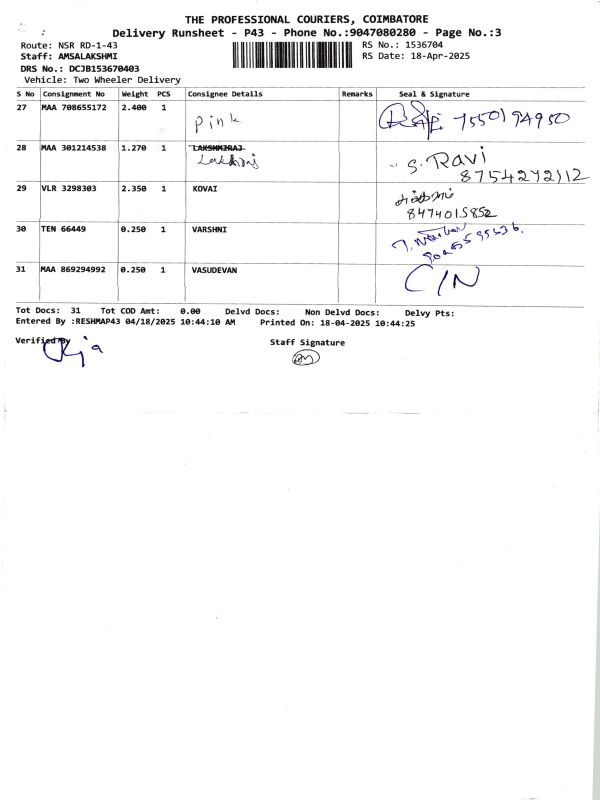 THE PROFESSIONAL COURIERS, COIMBATORE
Delivery Runsheet - P43 - Phone No.:9047080280 - Page No.:3
Route: NSR RD-1-43 RS No.: 1536704
Staff: AMSALAKSHMI RS Date: 18-Apr-2025
DRS No.: DCJB153670403
Vehicle: Two Wheeler Delivery
S No Consignment No Weight PCS Consignee Details Remarks Seal & Signature
27 MAA 708655172 2.400 1 Pink 7550194950
28 MAA 301214538 1.270 1 LAKSHMIRAJ S. Ravi
8754272112
29 VLR 3298303 2.350 1 KOVAI
8474015852
30 TEN 66449 0.250 1 VARSHNI
31 MAA 869294992 0.250 1 VASUDEVAN C/N
Tot Docs: 31 Tot COD Amt: 0.00 Delvd Docs: Non Delvd Docs: Delvy Pts:
Entered By :RESHMAP43 04/18/2025 10:44:10 AM Printed On: 18-04-2025 10:44:25
Verified By Staff Signature